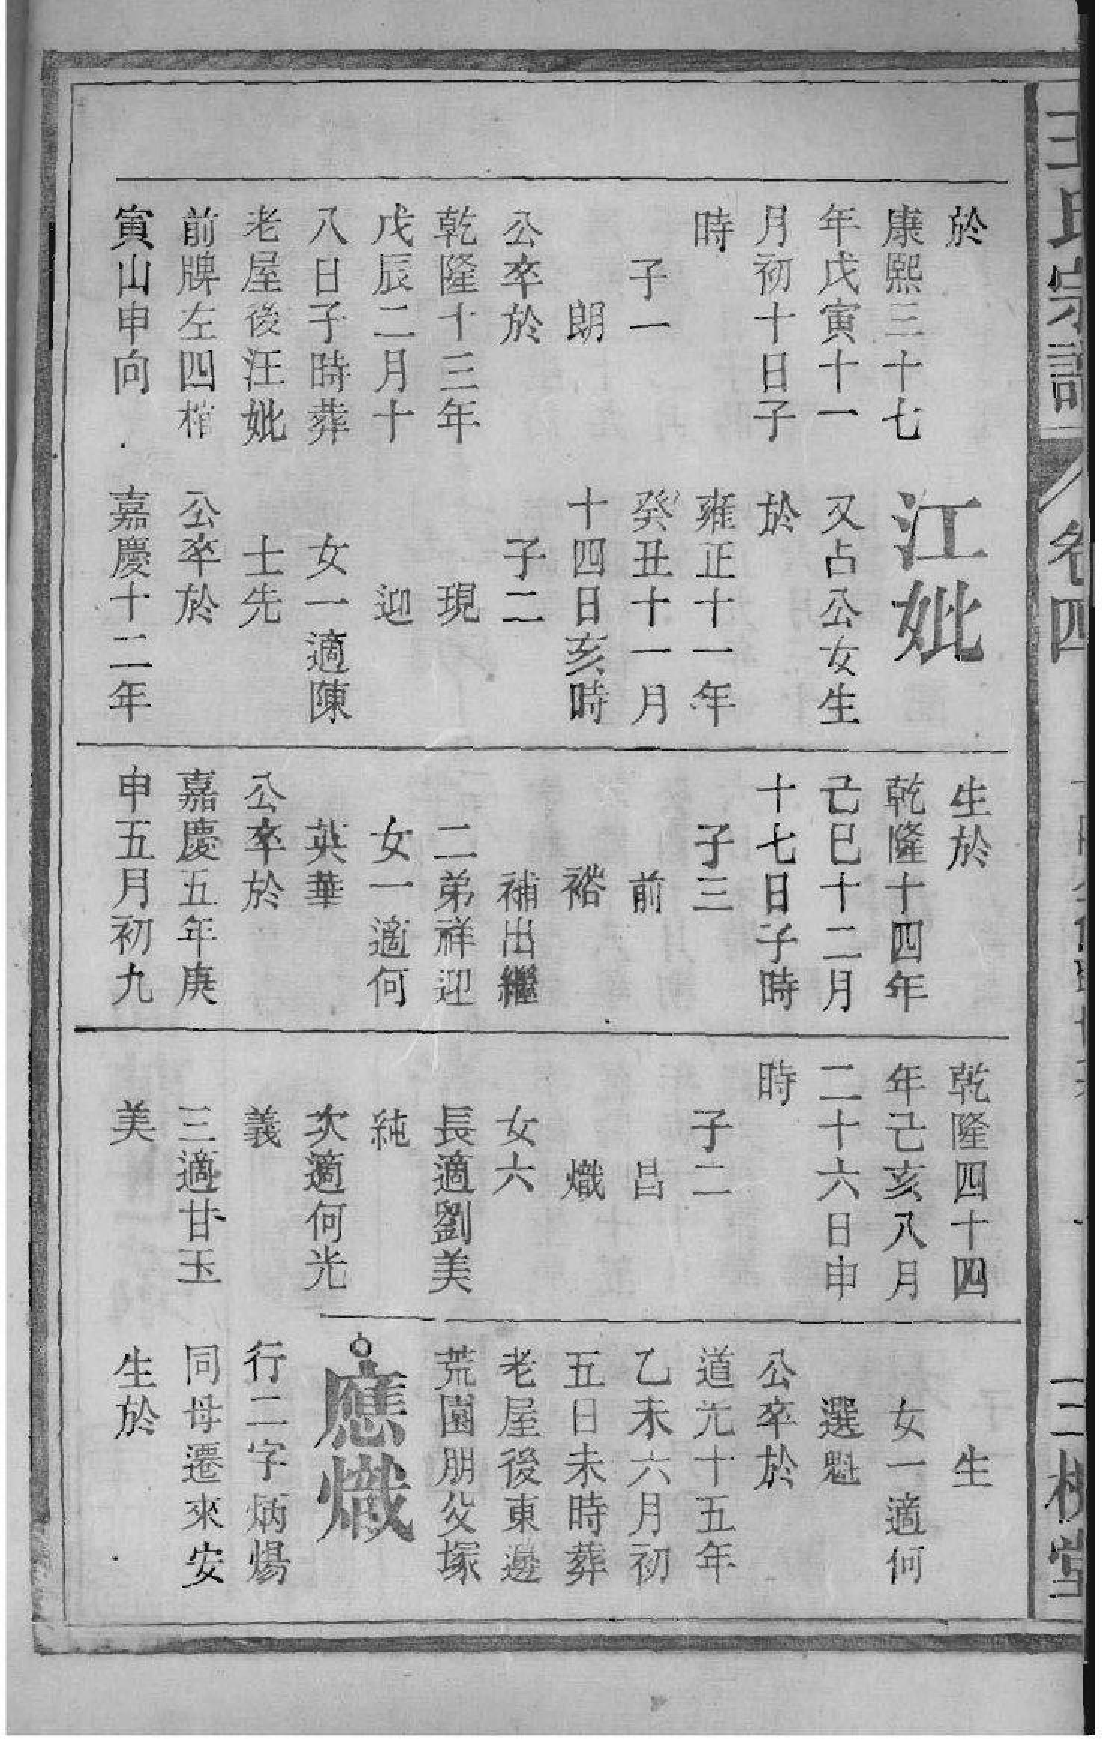 王氏宗譜
卷四
三槐堂
於
康熙三十七
年戊寅十一
月初十日子
時
子一
朗
公卒於
乾隆十三年
戊辰二月十
八日子時葬
老屋後汪妣
前牌左四棺
寅山申向
江妣
又占公女生
於
雍正十一年
癸丑十一月
十四日亥時
子二
現
迎
女一適陳
士先
公卒於
嘉慶十二年
生於
乾隆十四年
己巳十二月
十七日子時
子三
前
裕
補出繼
二弟祥迎
女一適何
英華
公卒於
嘉慶五年庚
申五月初九
乾隆四十四
年己亥八月
二十六日申
時
子二
昌
熾
女六
長適劉美
純
次適何光
義
三適甘玉
美
生
女一適何
選魁
公卒於
道光十五年
乙未六月初
五日未時葬
老屋後東邊
荒園朋父塚
應熾
行二字炳煬
同母遷來安
生於